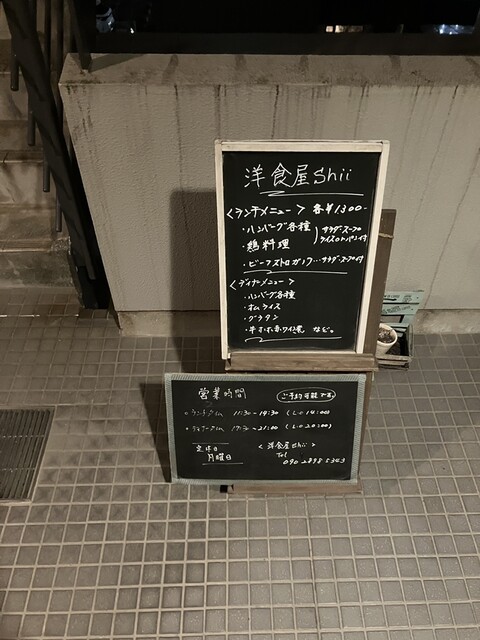 洋食屋Shii
<ランチメニュー> 各¥1300-
・ハンバーグ各種
・鶏料理
サラダ・スープ
ライスorパン付
・ビーフストロガノフ…サラダ・スープ付
<ディナーメニュー>
・ハンバーグ各種
・オムライス
・グラタン
・牛ホホ赤ワイン煮 など。
営業時間
ご予約可能です
・ランチタイム 11:30-14:30 (L.O 14:00)
・ディナータイム 17:30-21:00 (L.O 20:00)
定休日
月曜日
<洋食屋Shii>
Tel
090 2898 5343